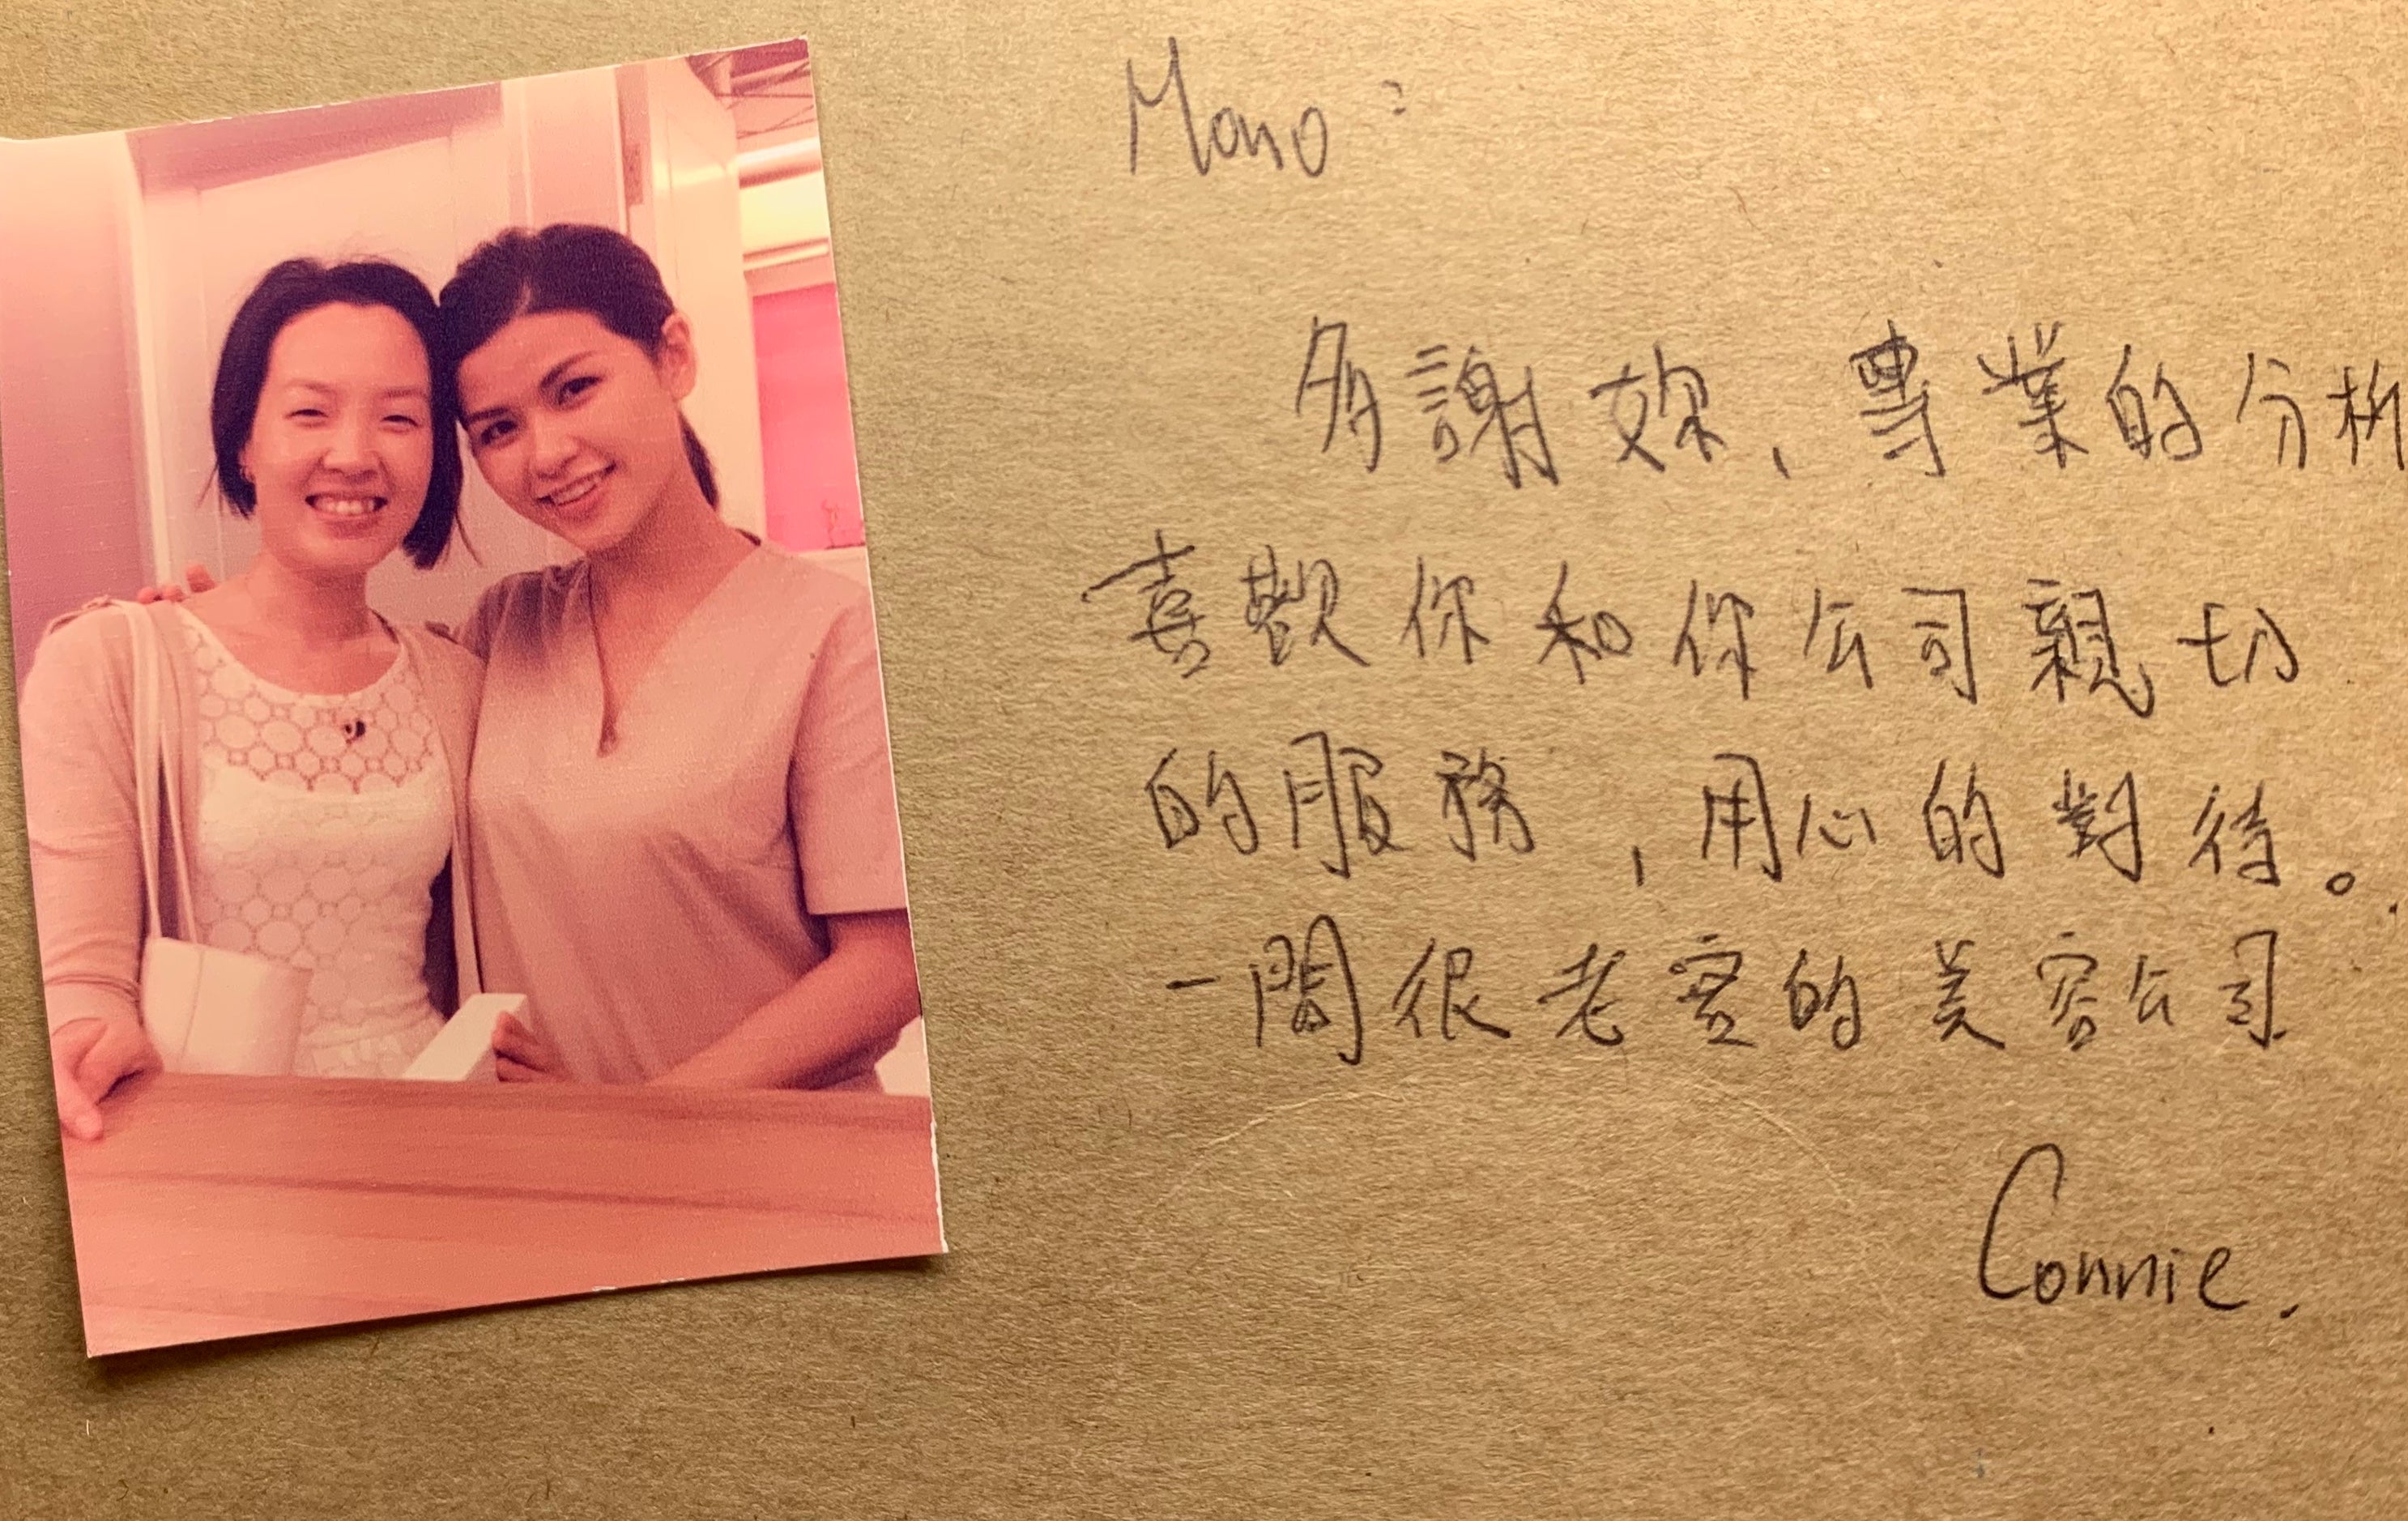 Mono:
多謝妳、專業的分析
喜歡你和你公司親切
的服務,用心的對待。
一間很老實的美容公司
Connie.